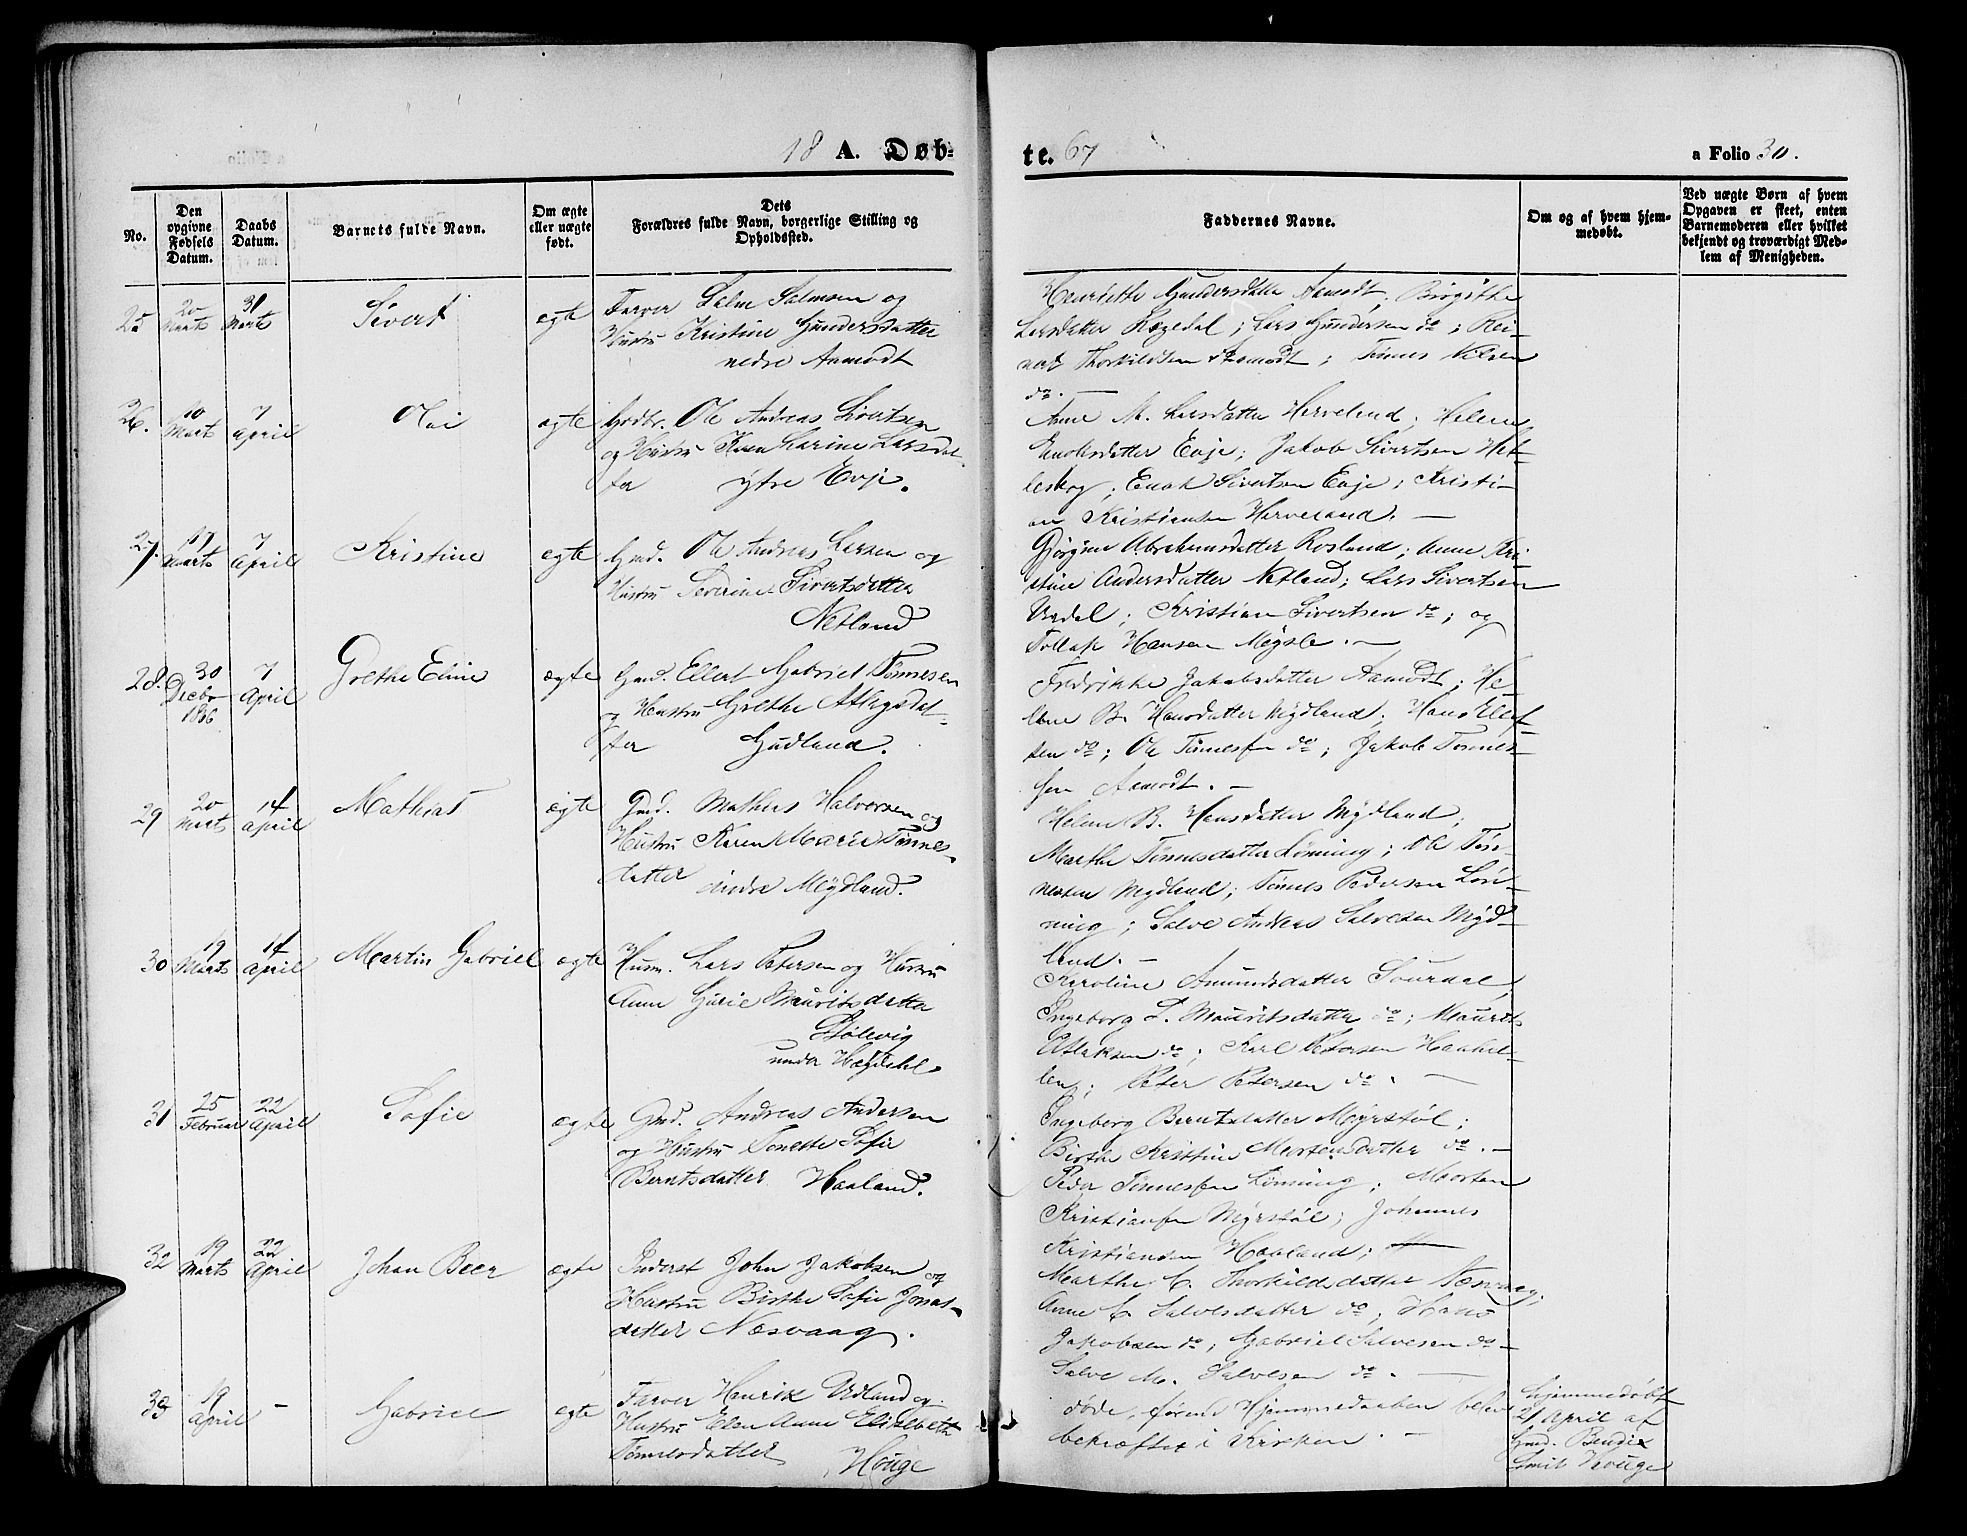 18 A. Døb-
te. 67
a Folio 30.
No.
Den opgivne Fødsels Datum.
Daabs Datum.
Barnets fulde Navn.
Om ægte eller uægte født.
Dets Forældres fulde Navn, borgerlige Stilling og Opholdssted.
Faddernes Navne.
Om og af hvem hjem-
medøbt.
Ved uægte Børn af hvem
Opgaven er skeet, enten
Barnemoderen eller hvilket
bekjendt og troværdigt Med-
lem af Menigheden.
25 20 Marts 31 Marts Sivert ægte Farver Salm Salmsen og
Hustru Kristine Gundersdatter
nedre Aamodt
Henriette Gundersdatter Aamodt; Birgithe
Larsdatter Rægedal; Lars Gundersen do; Rei-
nert Thorkildsen Aamodt; Tønnes Nilsen
do. —
26. 10 Marts 7 April Olai ægte Grdbr. Ole Andreas Sivertsen
og Hustru Karen Marine Larsdat-
ter ytre Evje.
Anne M. Larsdatter Herveland; Helene
Enoksdatter Evje; Jakob Sivertsen Hel-
leskog; Enok Sivertsen Evje; Kristi-
an Kristiansen Herveland. —
27. 17 Marts 7 April Kristine ægte Gmd. Ole Andreas Larsen og
Hustru Severine Sivertsdatter
Netland
Gjørgine Abrahamsdatter Rosland; Anne Kri-
stine Andersdatter Netland; Lars Sivertsen
Urdal; Kristian Sivertsen do; og
Tollak Hansen Meysle. —
28. 30 Decbr 1866 7 April Grethe Eline ægte Gmd. Ellert Gabriel Tønnesen
og Hustru Grethe Atlagsdat-
ter Gudland.
Fredrikke Jakobsdatter Aamodt; He-
lene B. Hansdatter Mydland; Hans Ellef-
sen do; Ole Tønnessen do; Jakob Tønnes-
sen Aamodt. —
29 20 Marts 14 April Mathias ægte Gmd. Mathias Halvorsen og
Hustru Karen Marie Tønnes-
datter indre Meydland.
Helene B. Hansdatter Mydland;
Marthe Tønnesdatter Lønning; Ole Tøn-
nesen Mydland; Tønnes Pedersen Løn-
ning; Salve Andreas Salvesen Myd-
land. —
30 19 Marts 14 April Martin Gabriel ægte Husm. Lars Petersen og Hustru
Anne Gurie Mauritsdatter
Stølevig
under Hægdahl.
Karoline Amundsdatter Sourdal,
Ingeborg L. Mauritsdatter do; Maurits
Atlaksen do; Karl Petersen Haakel-
len; Peter Petersen do. —
31 25 Februar 22 April Sofie ægte Gmd. Andreas Andersen
og Hustru Tonette Sofie
Berntsdatter Haaland.
Ingeborg Berntsdatter Myrstøl;
Birthe Kristine Mortensdatter do. —
Peder Tønnessen Lønning; Morten
Kristiansen Myrstøl; Johannes
Kristiansen Haaland;
32 19 Marts 22 April Johan Beer ægte Inderst John Jakobsen og
Hustru Birthe Sofie Jonas-
datter Næsvaag.
Marthe C. Thorkildsdatter Næsvaag;
Anne C. Salvesdatter do; Hans
Jakobsen do; Gabriel Salvesen do —
Salve M. Salvesen do. —
33 19 April - Gabriel ægte Farver Henrik Udland og
Hustru Elen Anne Elisabeth
Tønnesdatter Houge
døde, førend Hjemmedaaben blev
bekræftet i Kirken. —
Hjemmedøbt
21 April af
Gmd. Bendix
Smit Houge